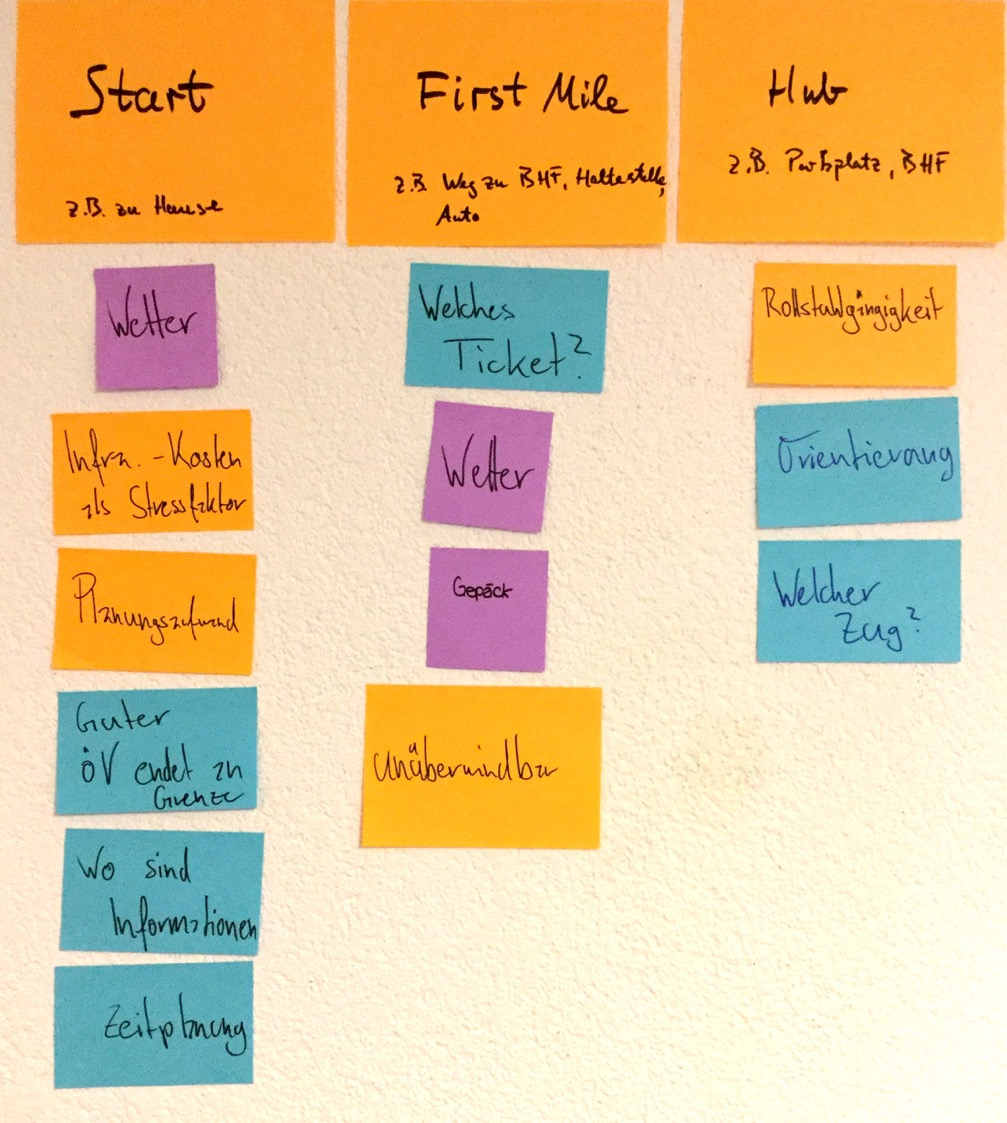 Start
z.B. zu Hause
Wetter
Infra.-Kosten
als Stressfaktor
Planungsaufwand
Guter
öV endet an
Grenze
Wo sind
Informationen
Zeitplanung
First Mile
z.B. Weg zu BHF, Haltestelle,
Auto
Welches
Ticket?
Wetter
Gepäck
unüberwindbar
Hub
z.B. Parkplatz, BHF
Rollstuhlgängigkeit
Orientierung
Welcher
Zug?